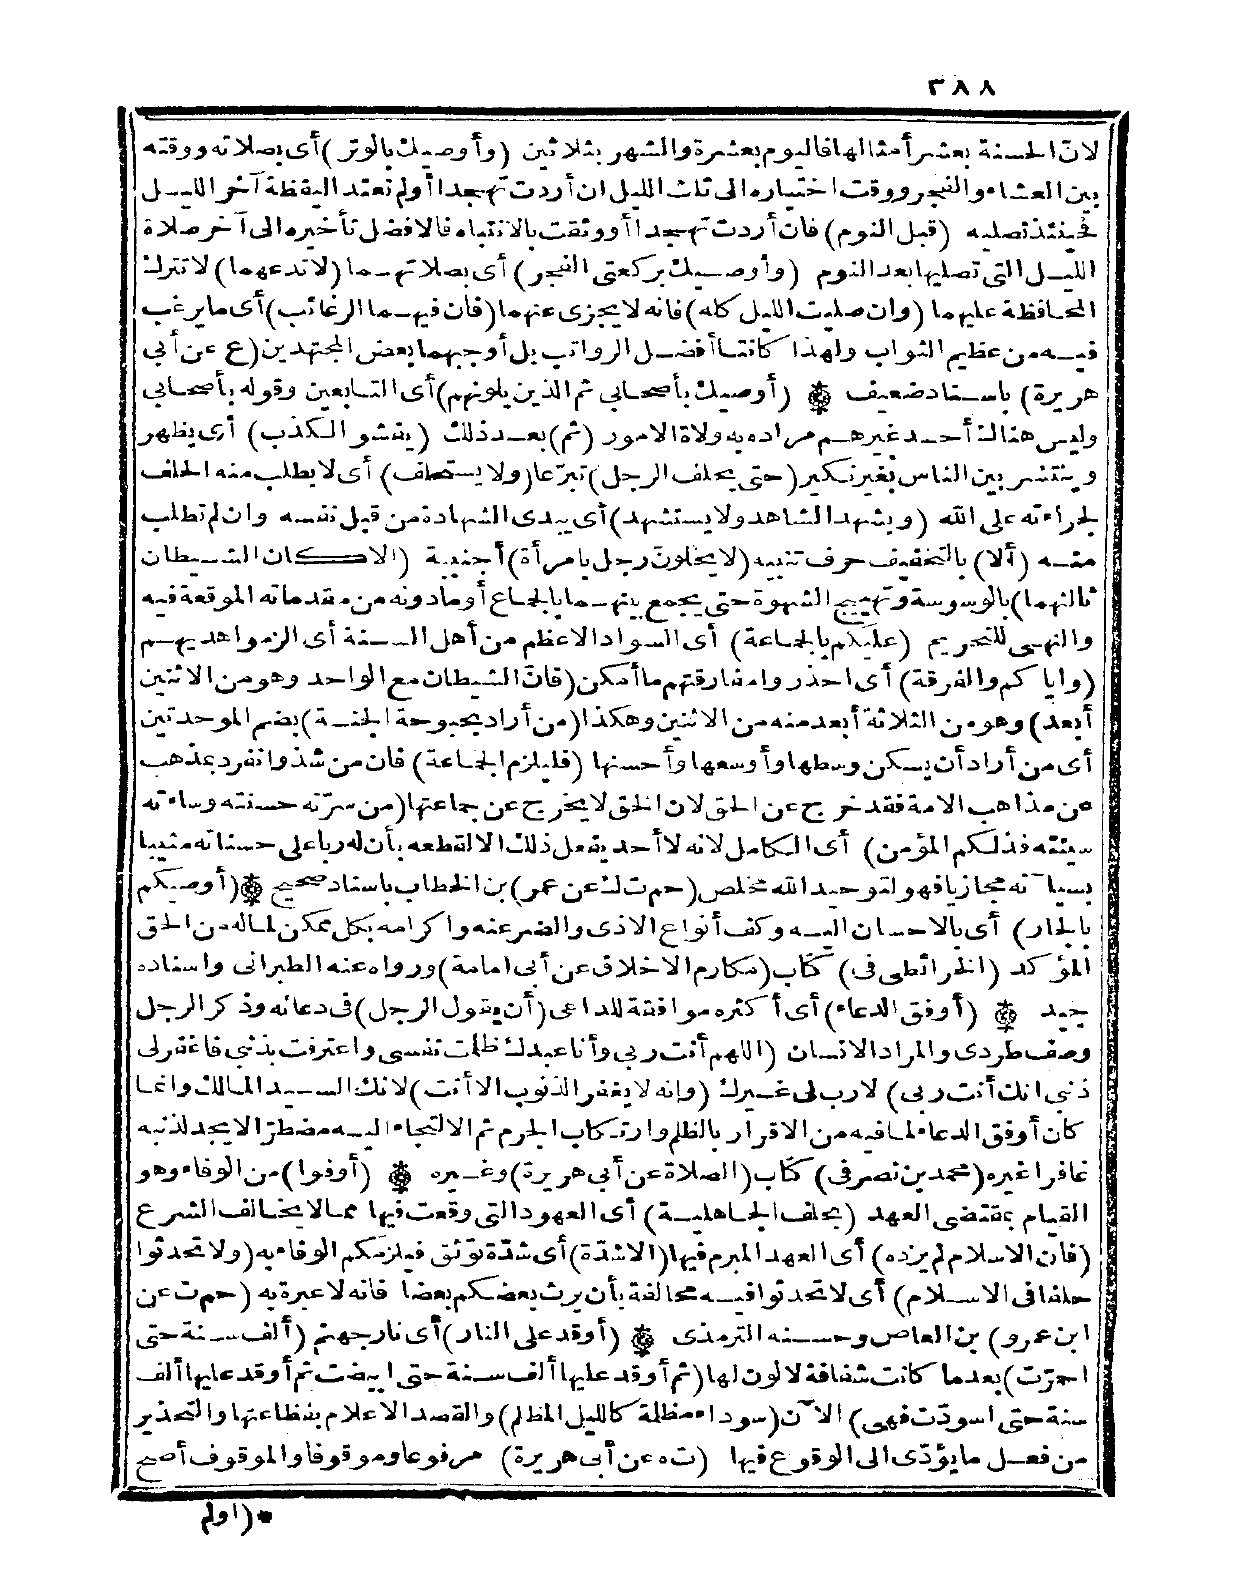 ٣٨٨
لانّ الحسنة بعشر أمثالها فاليوم بعشرة والشهر بثلاثين (وأوصيك بالوتر) أى بصلاته ووقته
بين العشاء والفجر ووقت اختياره الى ثلث الليل ان أردت تهجدا أولم تعتد اليقظة آخر الليل
فحينئذ تصليه (قبل النوم) فان أردت تهجدا أو وثقت بالانتباه فالافضل تأخيره الى آخر صلاة
الليل التى تصليها بعد النوم (وأوصيك بركعتى الفجر) أى بصلاتهما (لا تدعهما) لا تترك
المحافظة عليهما (وان صليت الليل كله) فانه لا يجزى عنهما (فان فيهما الرغائب) أى ما يرغب
فيه من عظيم الثواب ولهذا كانتا أفضل الرواتب بل أوجبهما بعض المجتهدين (ع عن أبى
هريرة) باسناد ضعيف ۞ (أوصيك بأصحابى ثم الذين يلونهم) أى التابعين وقوله بأصحابى
وليس هناك أحد غيرهم مراده به ولاة الامور (ثم) بعد ذلك (يفشو الكذب) أى يظهر
وينتشر بين الناس بغير نكير (حتى يحلف الرجل) تبرّعا (ولا يستحلف) أى لا يطلب منه الحلف
لجراءته على الله (ويشهد الشاهد ولا يستشهد) أى يبدى الشهادة من قبل نفسه وان لم تطلب
منه (ألا) بالتخفيف حرف تنبيه (لا يخلونّ رجل بامرأة) أجنبية (الا كان الشيطان
ثالثهما) بالوسوسة وتهييج الشهوة حتى يجمع بينهما بالجماع أو مادونه من مقدماته الموقعة فيه
والنهى للتحريم (عليكم بالجماعة) أى السواد الاعظم من أهل السنة أى الزموا هديهم
(واياكم والفرقة) أى احذروا مفارقتهم ما أمكن (فانّ الشيطان مع الواحد وهو من الاثنين
أبعد) وهو من الثلاثة أبعد منه من الاثنين وهكذا (من أراد بحبوحة الجنة) بضم الموحدتين
أى من أراد أن يسكن وسطها وأوسعها وأحسنها (فليلزم الجماعة) فان من شذ وانفرد بمذهب
عن مذاهب الامة فقد خرج عن الحق لان الحق لا يخرج عن جماعتها (من سرّته حسنته وساءته
سيئته فذلكم المؤمن) أى الكامل لانه لا أحد يفعل ذلك الا لقطعه بأن له ربا على حسناته مثيبا
بسيآته مجازيا فهو لتوحيد الله مخلص (حم ت ك عن عمر) بن الخطاب باسناد صحيح ۞ (أوصيكم
بالجار) أى بالاحسان اليه وكف أنواع الاذى والضر عنه واكرامه بكل ممكن لماله من الحق
المؤكد (الخرائطى فى) كتاب (مكارم الاخلاق عن أبى امامة) ورواه عنه الطبرانى واسناده
جيد ۞ (أوفق الدعاء) أى أكثره موافقة للداعى (أن يقول الرجل) فى دعائه وذكر الرجل
وصف طردى والمراد الانسان (اللهم أنت ربى وأنا عبدك ظلمت نفسى واعترفت بذنبى فاغفر لى
ذنبى انك أنت ربى) لارب لى غيرك (وانه لا يغفر الذنوب الا أنت) لانك السيد المالك وانما
كان أوفق الدعاء لما فيه من الاقرار بالظلم وارتكاب الجرم ثم الالتجاء اليه مضطرّا لا يجد لذنبه
غافرا غيره (محمد بن نصر فى) كتاب (الصلاة عن أبى هريرة) وغيره ۞ (أوفوا) من الوفاء وهو
القيام بمقتضى العهد (بحلف الجاهلية) أى العهود التى وقعت فيها مما لا يخالف الشرع
(فان الاسلام لم يزده) أى العهد المبرم فيها (الا شدّة) أى شدّة توثق فيلزمكم الوفاء به (ولا تحدثوا
حلفا فى الاسلام) أى لا تحدثوا فيه محالفة بأن يرث بعضكم بعضا فانه لا عبرة به (حم ت عن
ابن عمرو) بن العاص وحسنه الترمذى ۞ (أوقد على النار) أى نار جهنم (ألف سنة حتى
احمرّت) بعدما كانت شفافة لا لون لها (ثم أوقد عليها ألف سنة حتى ابيضت ثم أوقد عليها ألف
سنة حتى اسودّت فهى) الآن (سوداء مظلة كالليل المظلم) والقصد الاعلام بفظاعتها والتحذير
من فعل ما يؤدّى الى الوقوع فيها (ت ه عن أبى هريرة) مرفوعا وموقوفا والموقوف أصح
* (اولم